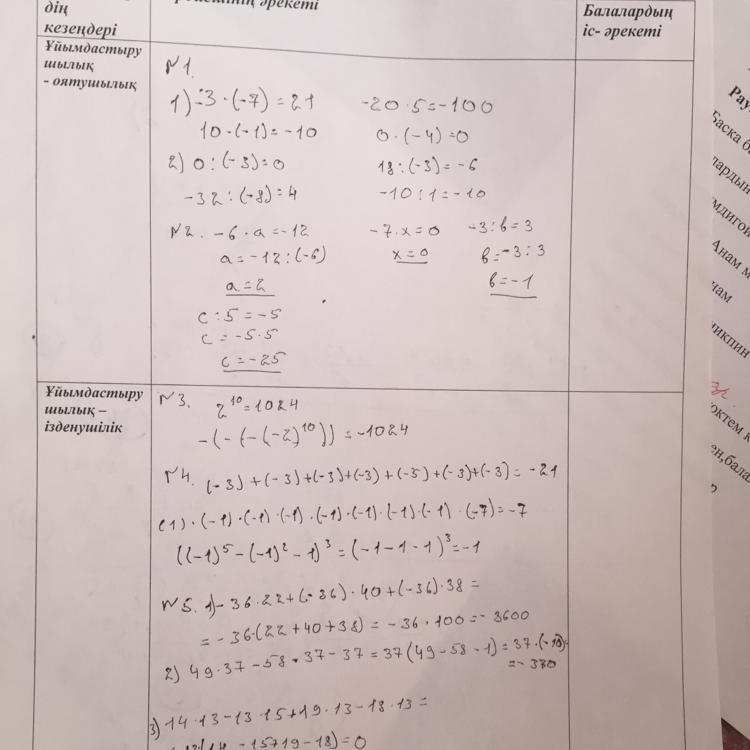 дің
кезеңдері
әрекеті
Балалардың
іс- әрекеті
Ұйымдастыру
шылық
- оятушылық
№1.
1) -3·(-7)=21 -20·5=-100
10·(-1)=-10 0·(-4)=0
2) 0:(-3)=0 18:(-3)=-6
-32:(-8)=4 -10:1=-10
№2. -6·a=-12 -7·x=0 -3:b=3
a=-12:(-6) x=0 b=-3:3
a=2 b=-1
c:5=-5
c=-5·5
c=-25
Ұйымдастыру
шылық –
ізденушілік
№3. 2¹⁰=1024
-(-(-(-2)¹⁰))=-1024
№4. (-3)+(-3)+(-3)+(-3)+(-3)+(-3)+(-3)=-21
(1)·(-1)·(-1)·(-1)·(-1)·(-1)·(-1)·(-1)·(-7)=-7
((-1)⁵-(-1)²-1)³=(-1-1-1)³=-1
№5. 1)-36·22+(-36)·40+(-36)·38=
=-36·(22+40+38)=-36·100=-3600
2) 49·37-58·37-37=37(49-58-1)=37·(-10)=
=-370
3) 14·13-13·15+19·13-18·13=
-15+19-18)=0
Рау
Баска б
лардын
Анам м
нам